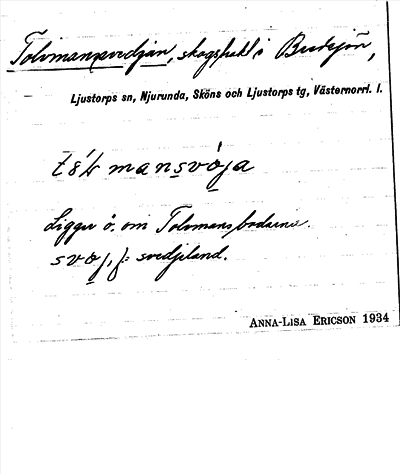 Tolvmanssvedjan, skogstrakt i Bredsjön,
Ljustorps sn, Njurunda, Sköns och Ljustorps tg, Västernorrl. l.
mansvöja
Ligger ö. om Tolvmansbodarna.
svöj, f = svedjeland.
ANNA-LISA ERICSON 1934